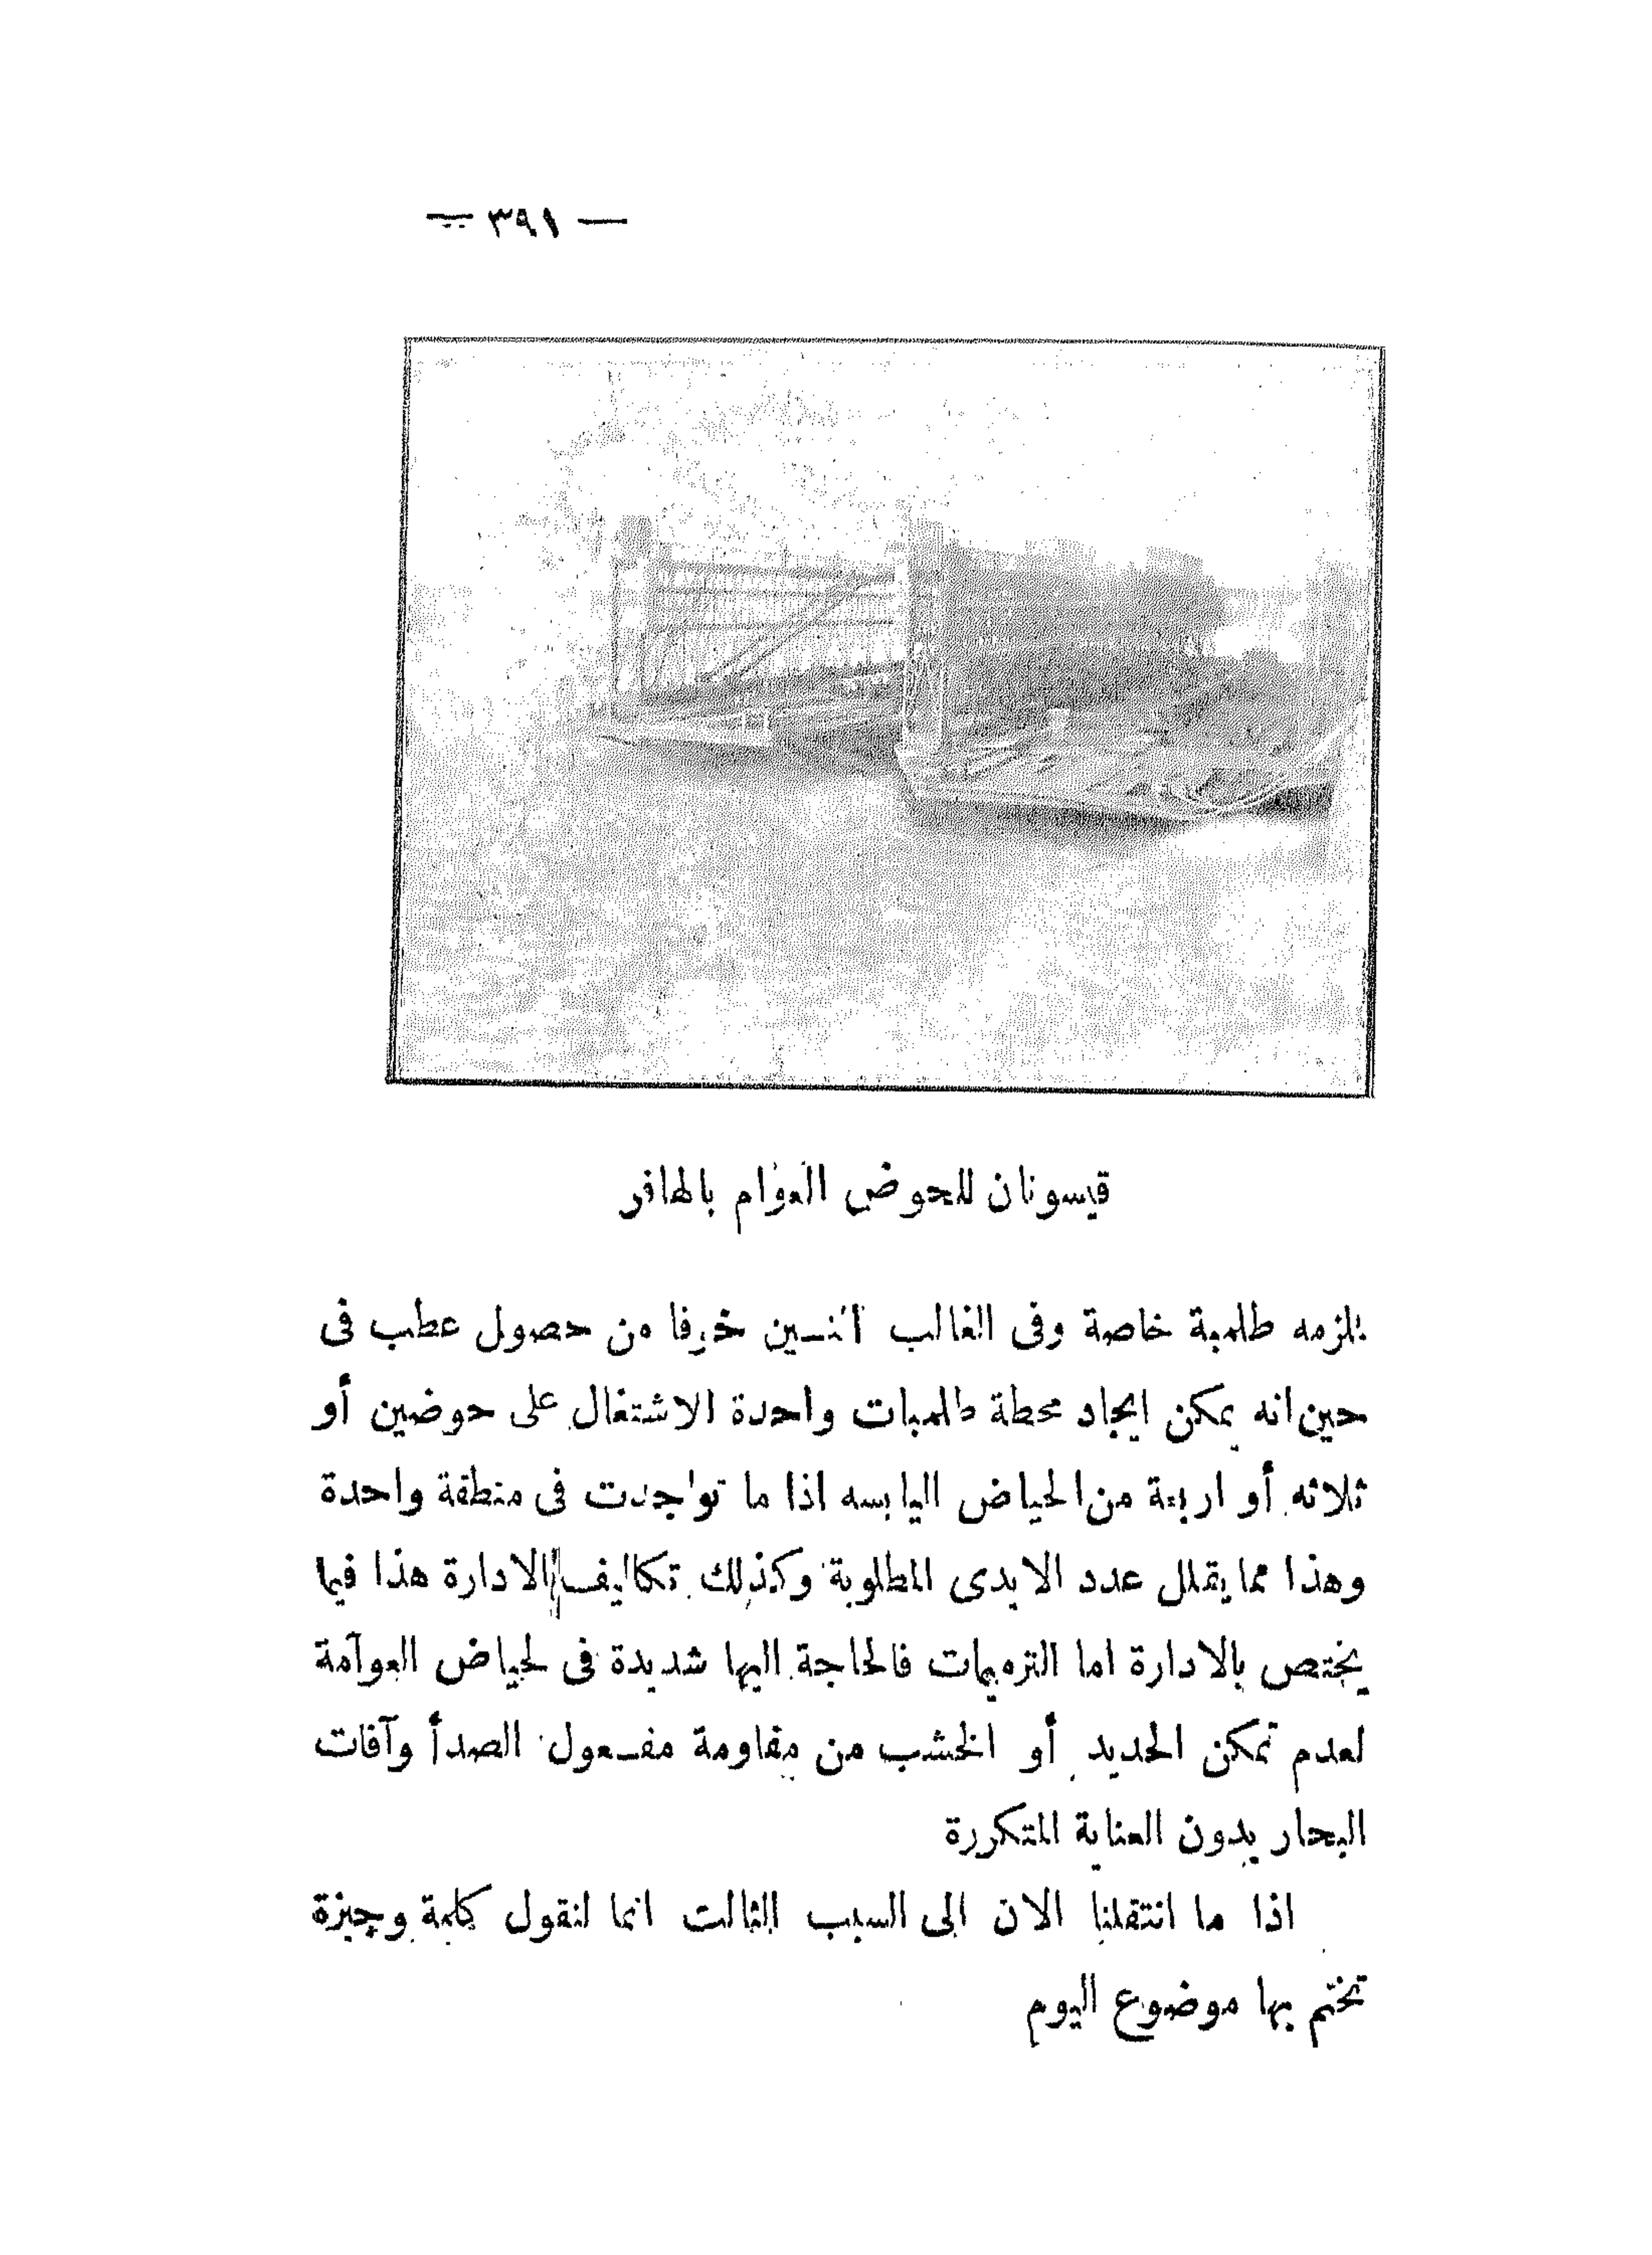 — ٣٩١ —
قيسونان للحوض العوام بالهافر
يلزمه طلمبة خاصة وفى الغالب اثنسين خوفا من حصول عطب فى
حين انه يمكن ايجاد محطة طلمبات واحدة الاشتغال على حوضين أو
ثلاثه أو اربعة من الحياض اليابسه اذا ما تواجدت فى منطقة واحدة
وهذا مما يقلل عدد الايدى المطلوبة وكذلك تكاليف الادارة هذا فيما
يختص بالادارة اما الترميمات فالحاجة اليها شديدة فى لحياض العوامة
لعدم تمكن الحديد أو الخشب من مقاومة مفـعول الصدأ وآفات
البحار بدون العناية المتكررة
اذا ما انتقلنا الان الى السبب الثالث انما لنقول كلمة وجيزة
نختم بها موضوع اليوم